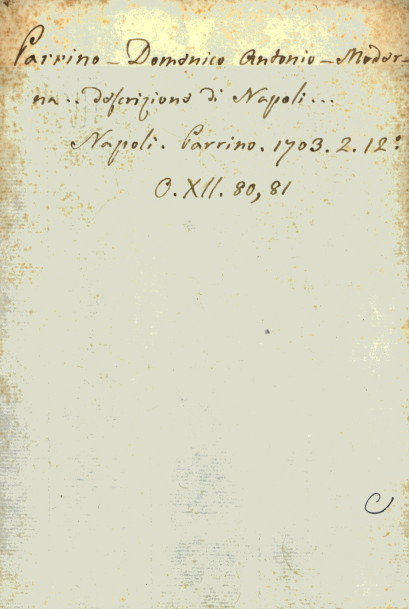 Parrino - Domenico Antonio - Moder-
na .. descrizione di Napoli ...
Napoli. Parrino. 1703. 2. 12º
O. XII. 80, 81
C